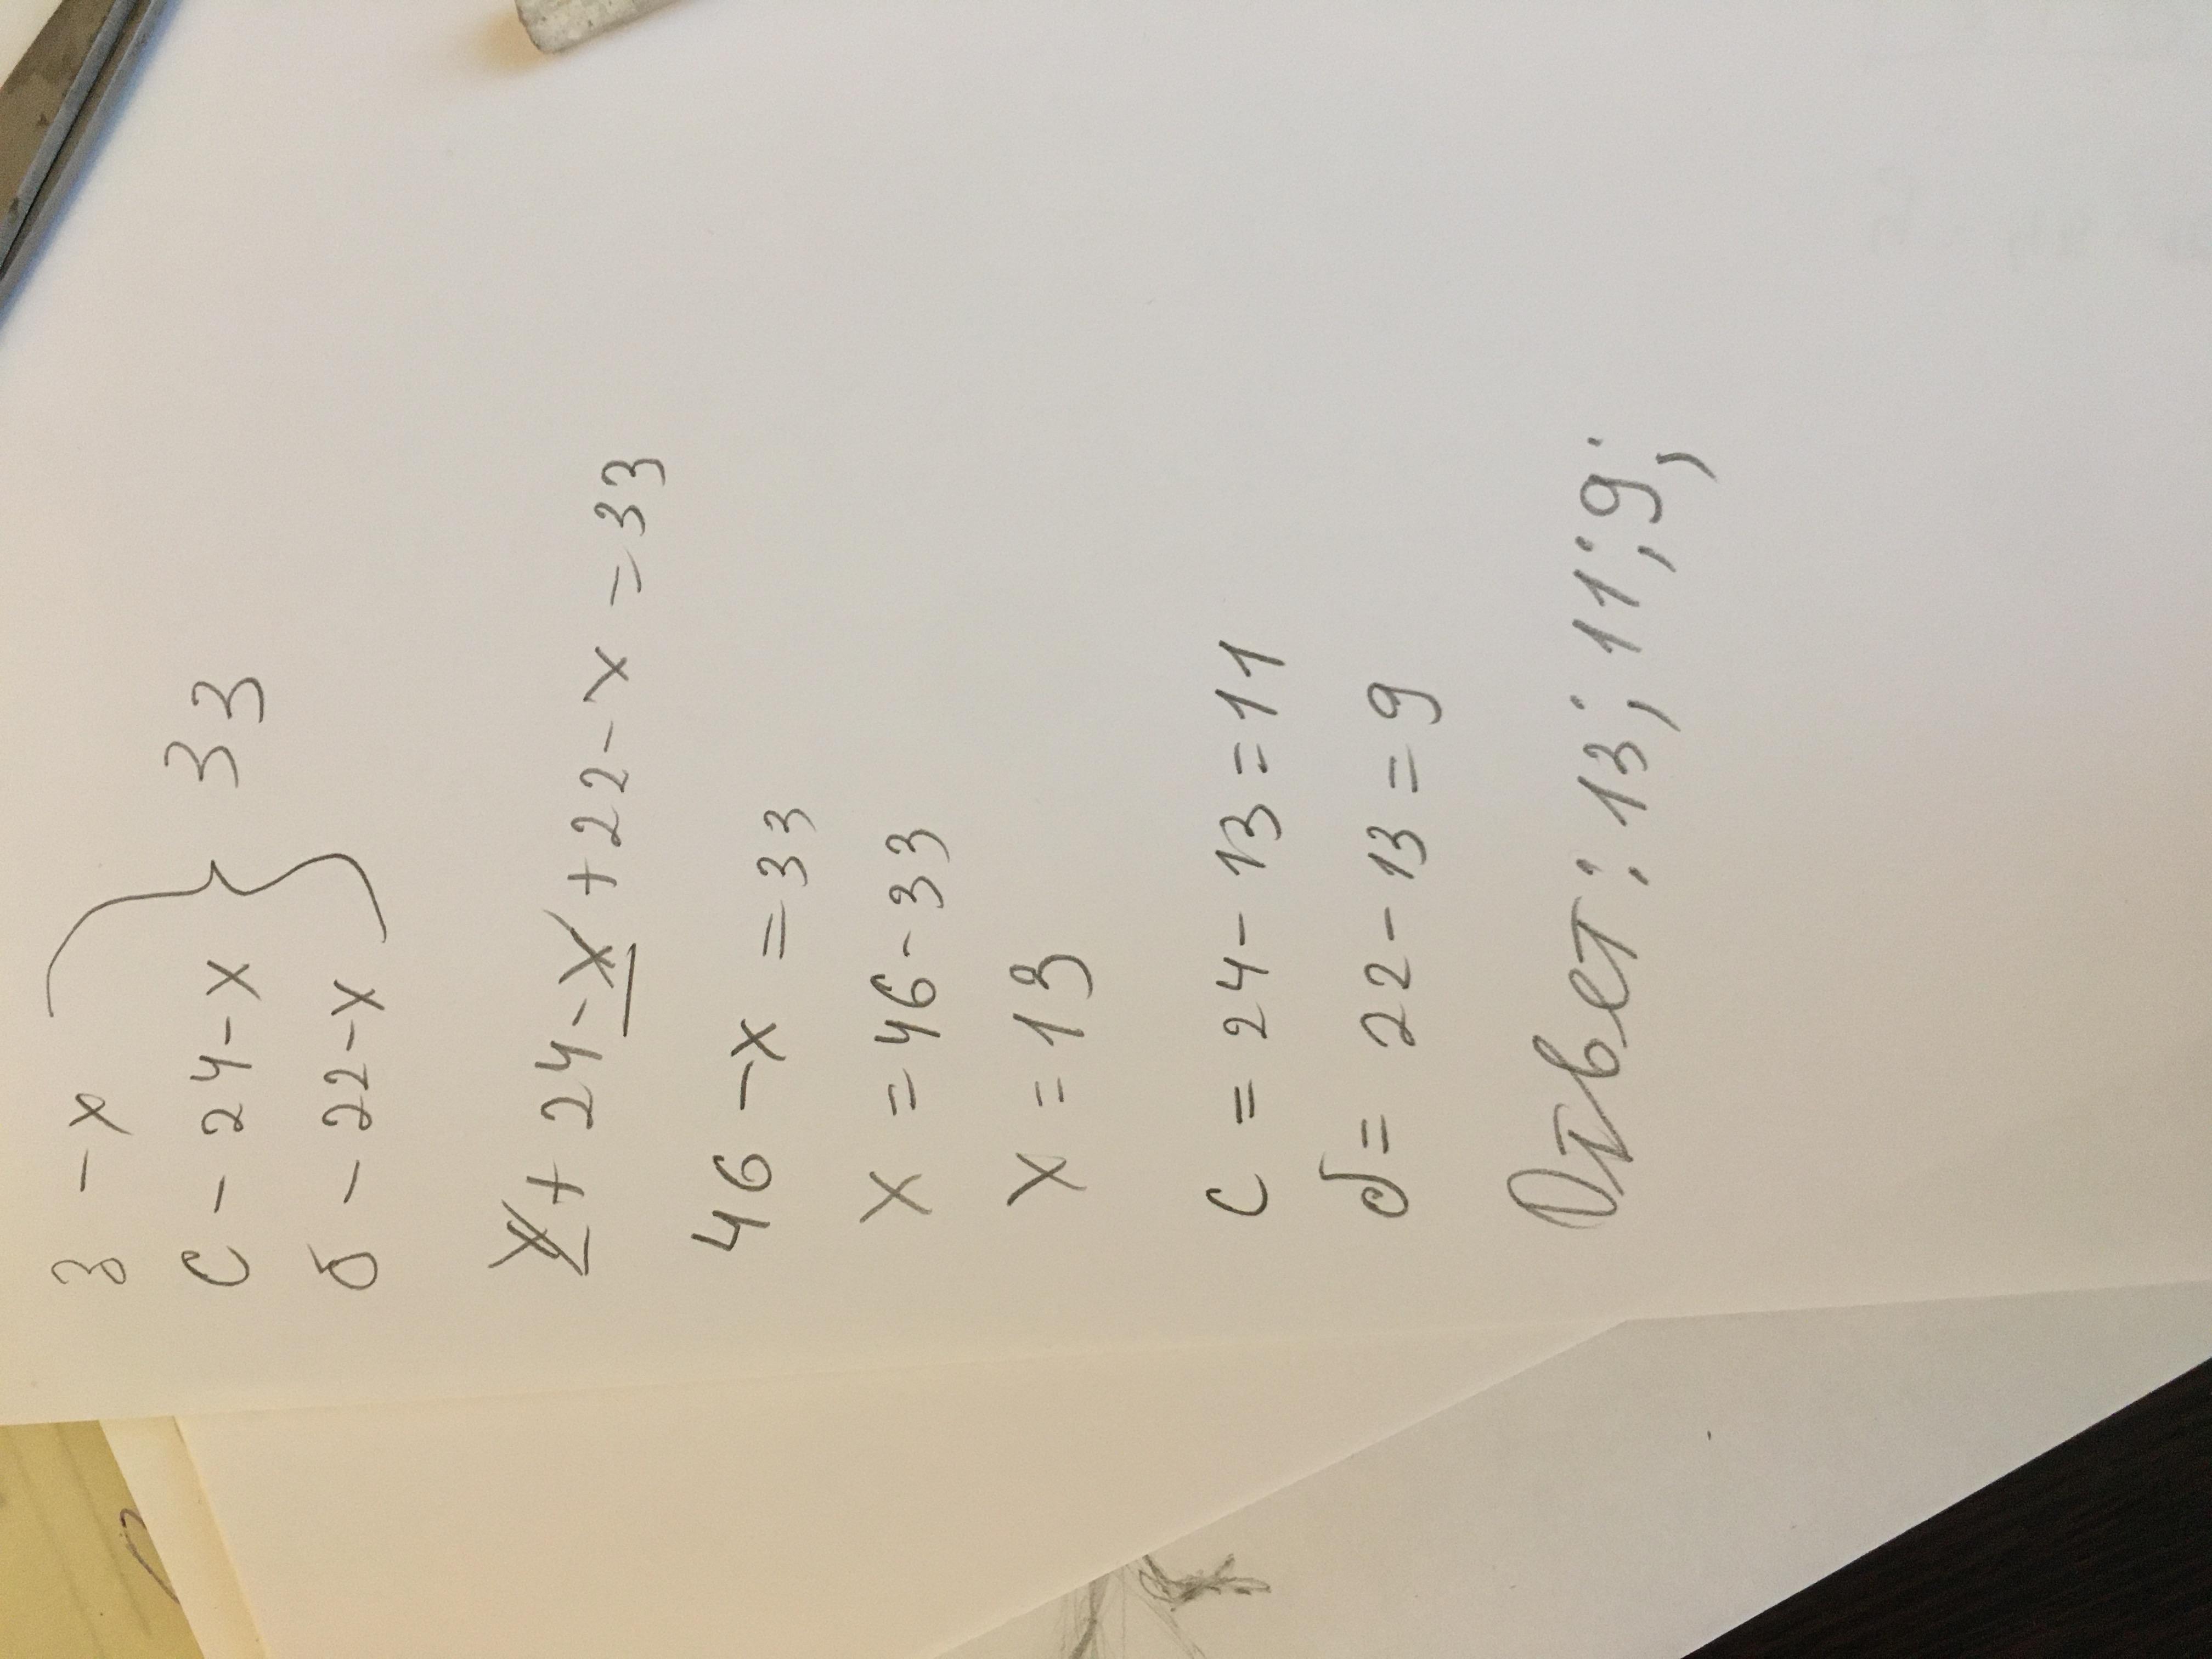 з - x
с - 24 - x } 33
б - 22 - x
x + 24 - x + 22 - x = 33
46 - x = 33
x = 46 - 33
x = 13
с = 24 - 13 = 11
б = 22 - 13 = 9
Ответ: 13; 11; 9;